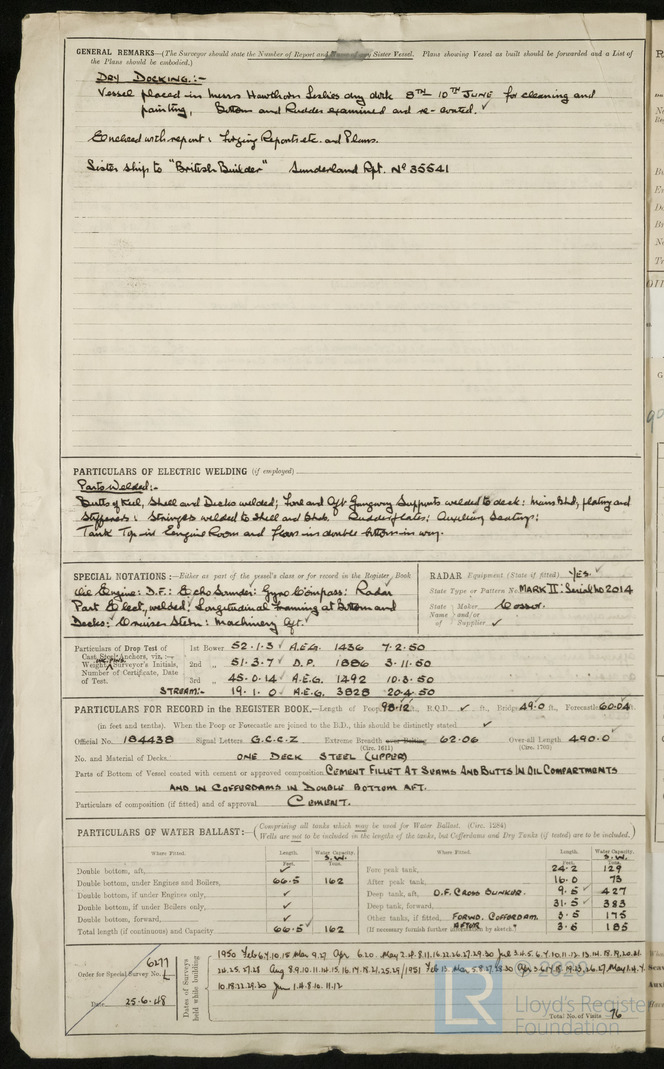 GENERAL REMARKS—(The Surveyor should state the Number of Report and Sister Vessel. Plans showing Vessel as built should be forwarded and a List of
the Plans should be embodied.)
DRY DOCKING.:-
Vessel placed in Messrs Hawthorn Leslies dry dock 8TH 10TH JUNE for cleaning and
painting, Bottom and Rudder examined and re-coated. ✓
Enclosed with report: Forging Reports etc. and Plans.
Sister ship to "British Builder" Sunderland Rpt. No 35541
PARTICULARS OF ELECTRIC WELDING (if employed)
Parts Welded:-
Butts of Keel, Shell and Decks welded; Fore and Aft Gangway Supports welded to deck: Mains Bhd, plating and
Stiffeners: Stringers welded to Shell and Bhds. Rudder plates: Auxiliary Seatings:
Tank Top in Engine Room and floors in double bottom in way.
SPECIAL NOTATIONS:—Either as part of the vessel's class or for record in the Register Book
Oil Engine: D.F.: Echo Sounder: Gyro Compass: Radar
Part Elect. welded: Longitudinal Framing at Bottom and
Decks: Cruiser Stern: Machinery Aft. ✓
RADAR Equipment (State if fitted) Yes. ✓
State Type or Pattern No MARK II: Serial No 2014
State Maker Cossor.
Name and/or
of Supplier ✓
Particulars of Drop Test of
Cast Steel Anchors, viz.:—
Weight, Surveyor's Initials,
Number of Certificate, Date
of Test.
1st Bower 52.1.3 ✓ A.E.G. 1436 7.2.50
2nd „ 51.3.7 ✓ D.P. 1886 3.11.50
3rd „ 45.0.14 ✓ A.E.G. 1492 10.3.50
STREAM:- 19.1.0 ✓ A.E.G. 3828 20.4.50
PARTICULARS FOR RECORD in the REGISTER BOOK.—Length of Poop 98.12 ft., R.Q.D. ✓ ft., Bridge 49.0 ft., Forecastle 60.04 ft.
(in feet and tenths). When the Poop or Forecastle are joined to the B.D., this should be distinctly stated ✓
Official No. 184438 Signal Letters G.C.C.Z Extreme Breadth over Plating 62.06 Over-all Length 490.0 ✓
(Circ. 1611) (Circ. 1703)
No. and Material of Decks ONE DECK STEEL (UPPER)
Parts of Bottom of Vessel coated with cement or approved composition CEMENT FILLET AT SEAMS AND BUTTS IN OIL COMPARTMENTS
AND IN COFFERDAMS IN DOUBLE BOTTOM AFT.
Particulars of composition (if fitted) and of approval CEMENT.
PARTICULARS OF WATER BALLAST:— (Comprising all tanks which may be used for Water Ballast. (Circ. 1284)
Wells are not to be included in the lengths of the tanks, but Cofferdams and Dry Tanks (if tested) are to be included.)
Where Fitted. Length. Water Capacity. Where Fitted. Length. Water Capacity.
Feet. S.W. Tons. Feet. S.W. Tons.
Double bottom, aft, ✓ Fore peak tank, 24.2 129
Double bottom, under Engines and Boilers, 66.5 162 After peak tank, 16.0 73
Double bottom, if under Engines only, ✓ Deep tank, aft, O.F. CROSS BUNKER. 9.5 ✓ 427
Double bottom, if under Boilers only, ✓ Deep tank, forward, 31.5 ✓ 383
Double bottom, forward, ✓ Other tanks, if fitted, FORWD. COFFERDAM. 3.5 175
Total length (if continuous) and Capacity 66.5 ✓ 162 (If necessary furnish further information by sketch) AFTER " 3.6 185
Order for Special Survey No. 6277 L
Date 25.6.48
Dates of Surveys held while building
1950 Feb 6.7.10.15 Mar 9.27 Apr 6.20.
Total No. of Visits 76
© 2020
LR
Lloyd's Register
Foundation